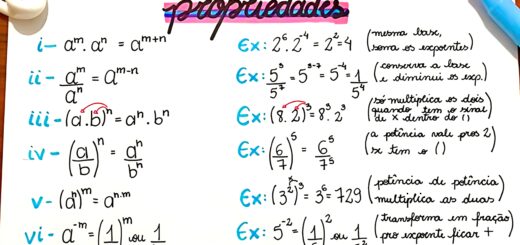 propriedades
i- aᵐ. aⁿ = aᵐ⁺ⁿ Ex: 2⁶. 2⁻⁴ = 2² = 4 (mesma base, soma os expoentes)
ii- aᵐ/aⁿ = aᵐ⁻ⁿ Ex: 5³/5⁷ = 5³⁻⁷ = 5⁻⁴ = 1/5⁴ (conserva a base e diminui os exp.)
iii- (a.b)ⁿ = aⁿ. bⁿ Ex: (8. 2)³ = 8³. 2³ (só multiplica os dois quando tem o sinal de x dentro do ( ))
iv- (a/b)ⁿ = aⁿ/bⁿ Ex: (6/7)⁵ = 6⁵/7⁵ (a potência vale pros 2 se tem o ( ))
v- (aⁿ)ᵐ = aⁿ·ᵐ Ex: (3²)³ = 3⁶ = 729 (potência de potência multiplica as duas)
vi- a⁻ᵐ = (1/)ᵐ ou 1 Ex: 5⁻² = (1/)² ou 1 (transforma em fração pro expoente ficar +)